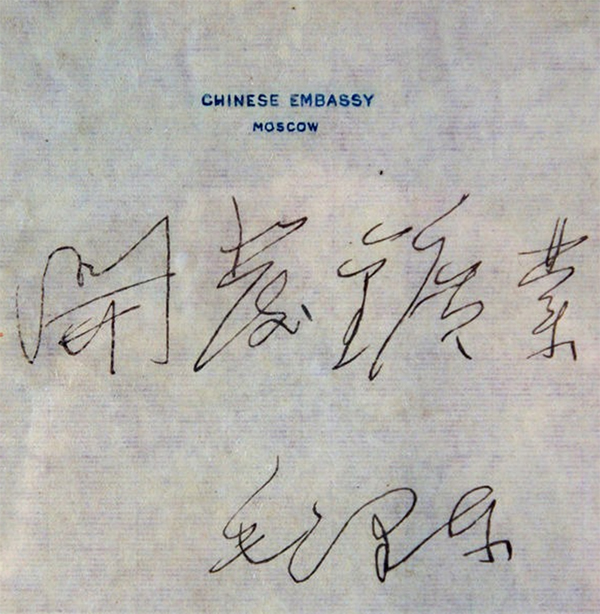 CHINESE EMBASSY
MOSCOW
開發鑛業
毛澤东